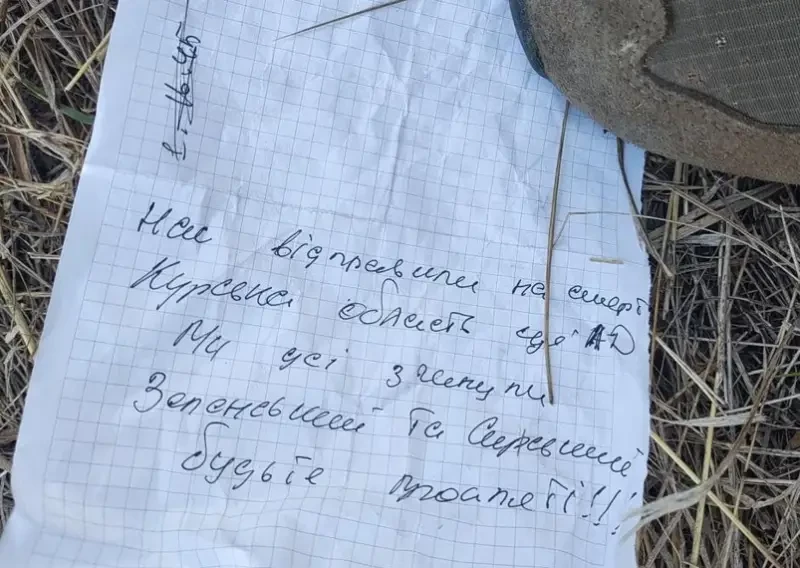 Нас відправили на смерть
Курська область це АД
Ми усі згинули
Зеленський та Сирський
будьте прокляті!!!